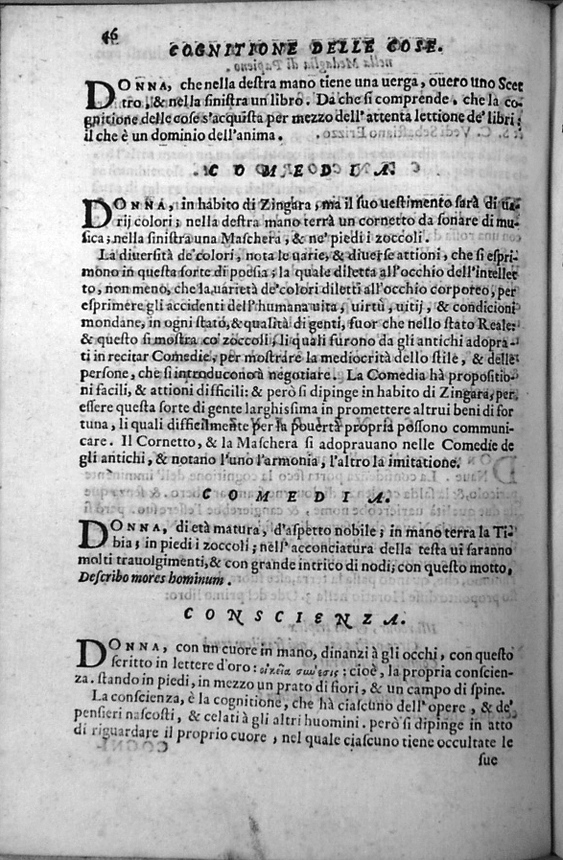 46
COGNITIONE DELLE COSE.
DONNA, che nella destra mano tiene una uerga, ouero uno Scet
tro, & nella sinistra un libro. Da che si comprende, che la co-
gnitione delle cose s'acquista per mezzo dell'attenta lettione de' libri;
il che è un dominio dell'anima.
COMEDIA.
DONNA, in habito di Zingara, ma il suo uestimento sarà di ua-
rij colori; nella destra mano terrà un cornetto da sonare di mu-
sica; nella sinistra una Maschera, & ne' piedi i zoccoli.
La diuersità de' colori, nota le uarie, & diuerse attioni, che si espri-
mono in questa sorte di poesia; la quale diletta all'occhio dell'intellet
to, non meno, che la uarietà de' colori diletti all'occhio corporeo, per
esprimere gli accidenti dell'humana uita, uirtù, uitij, & condicioni
mondane, in ogni stato, & qualità di genti, fuor che nello stato Reale:
& questo si mostra co' zoccoli, li quali furono da gli antichi adopra-
ti in recitar Comedie, per mostrare la mediocrità dello stile, & delle
persone, che si introduconoà negotiare. La Comedia hà propositio-
ni facili, & attioni difficili: & però si dipinge in habito di Zingara, per
essere questa sorte di gente larghissima in promettere altrui beni di for
tuna, li quali difficilmente per la pouertà propria possono communi-
care. Il Cornetto, & la Maschera si adoprauano nelle Comedie de
gli antichi, & notano l'uno l'armonia, l'altro la imitatione.
COMEDIA.
DONNA, di età matura, d'aspetto nobile; in mano terra la Ti-
bia; in piedi i zoccoli; nell'acconciatura della testa ui saranno
molti trauolgimenti, & con grande intrico di nodi, con questo motto,
Describo mores hominum.
CONSCIENZA.
DONNA, con un cuore in mano, dinanzi à gli occhi, con questo
scritto in lettere d'oro: οἰκεῖα σύνεσις: cioè, la propria conscien-
za. stando in piedi, in mezzo un prato di fiori, & un campo di spine.
La conscienza, è la cognitione, che hà ciascuno dell'opere, & de'
pensieri nascosti, & celati à gli altri huomini. però si dipinge in atto
di riguardare il proprio cuore, nel quale ciascuno tiene occultate le
sue